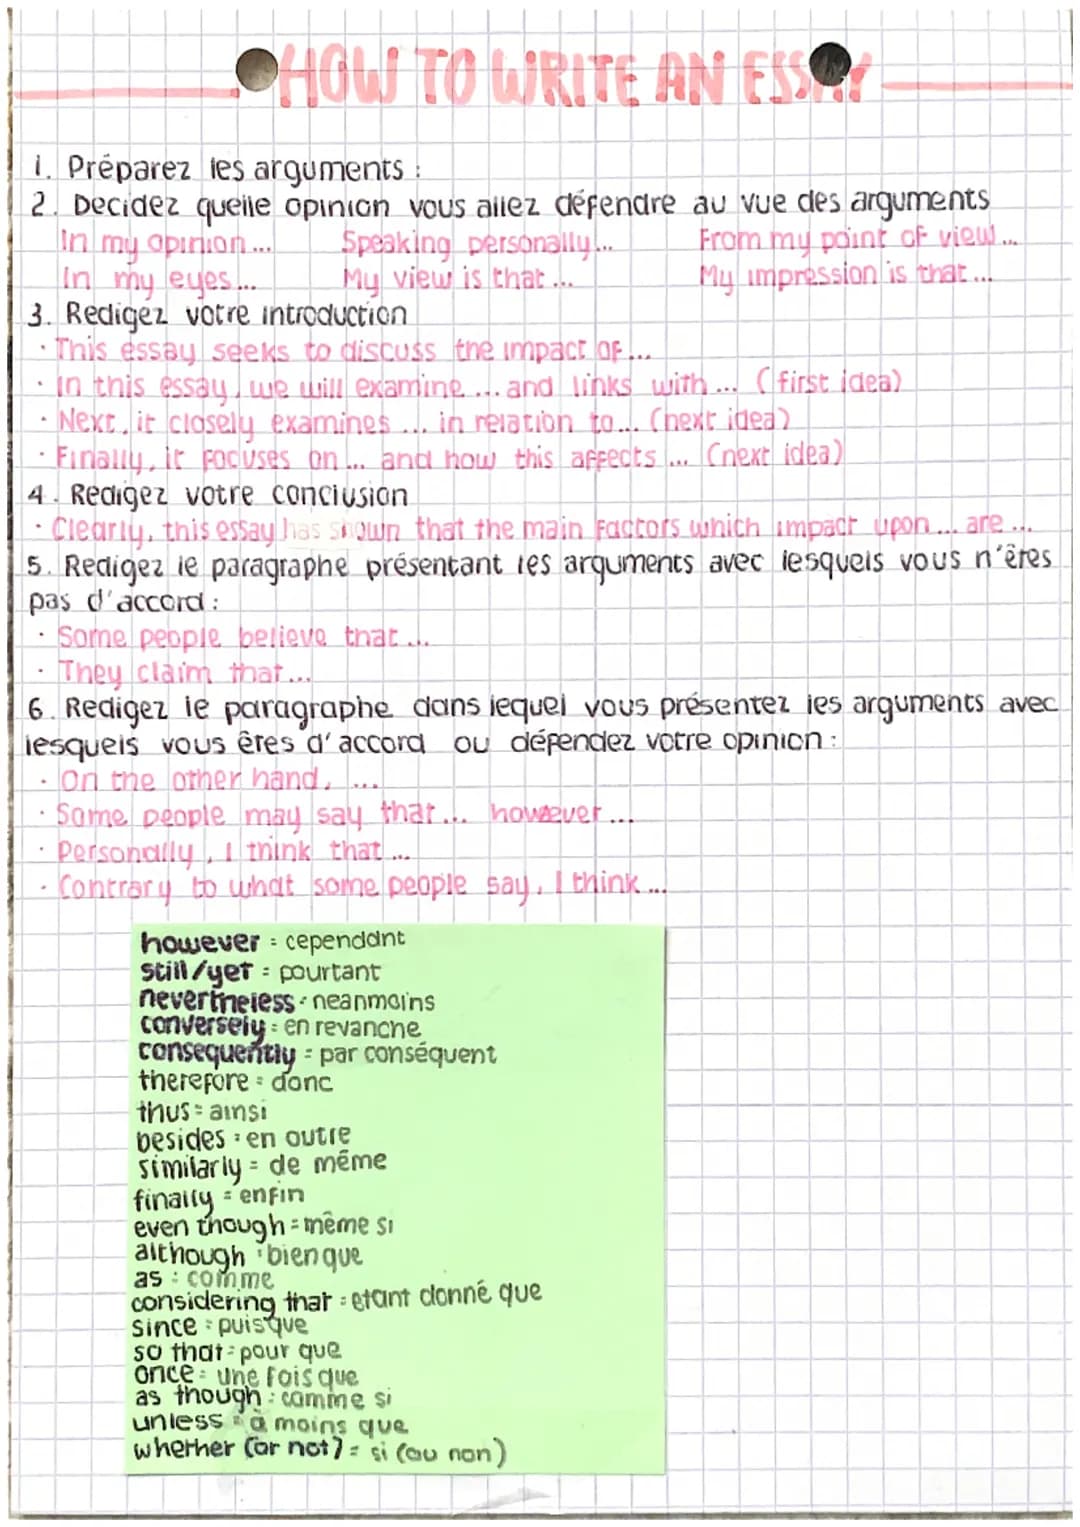 HOW TO WRITE AN ESSAY
1. Préparez les arguments :
2. Decidez quelle opinion vous allez défendre au vue des arguments
In my opinion... Speaking personally... From my point of view...
In my eyes... My view is that... My impression is that...
3. Redigez votre introduction
· This essay seeks to discuss the impact of...
· In this essay, we will examine... and links with... (first idea)
· Next, it closely examines... in relation to... (next idea)
· Finally, it focuses on... and how this affects... (next idea)
4. Redigez votre conclusion
· Clearly, this essay has shown that the main factors which impact upon... are...
5. Redigez le paragraphe présentant les arguments avec lesquels vous n'êtes
pas d'accord :
· Some people believe that...
· They claim that...
6. Redigez le paragraphe dans lequel vous présentez les arguments avec
lesquels vous êtes d'accord ou défendez votre opinion :
· On the other hand, ...
· Some people may say that... however...
· Personally, I think that...
· Contrary to what some people say, I think...
however = cependant
still/yet = pourtant
nevertheless = neanmoins
conversely = en revanche
consequently = par conséquent
therefore = donc
thus = ainsi
besides = en outre
similarly = de même
finally = enfin
even though = même si
although = bien que
as = comme
considering that = etant donné que
since = puisque
so that = pour que
once = une fois que
as though = comme si
unless = à moins que
whether (or not) = si (ou non)